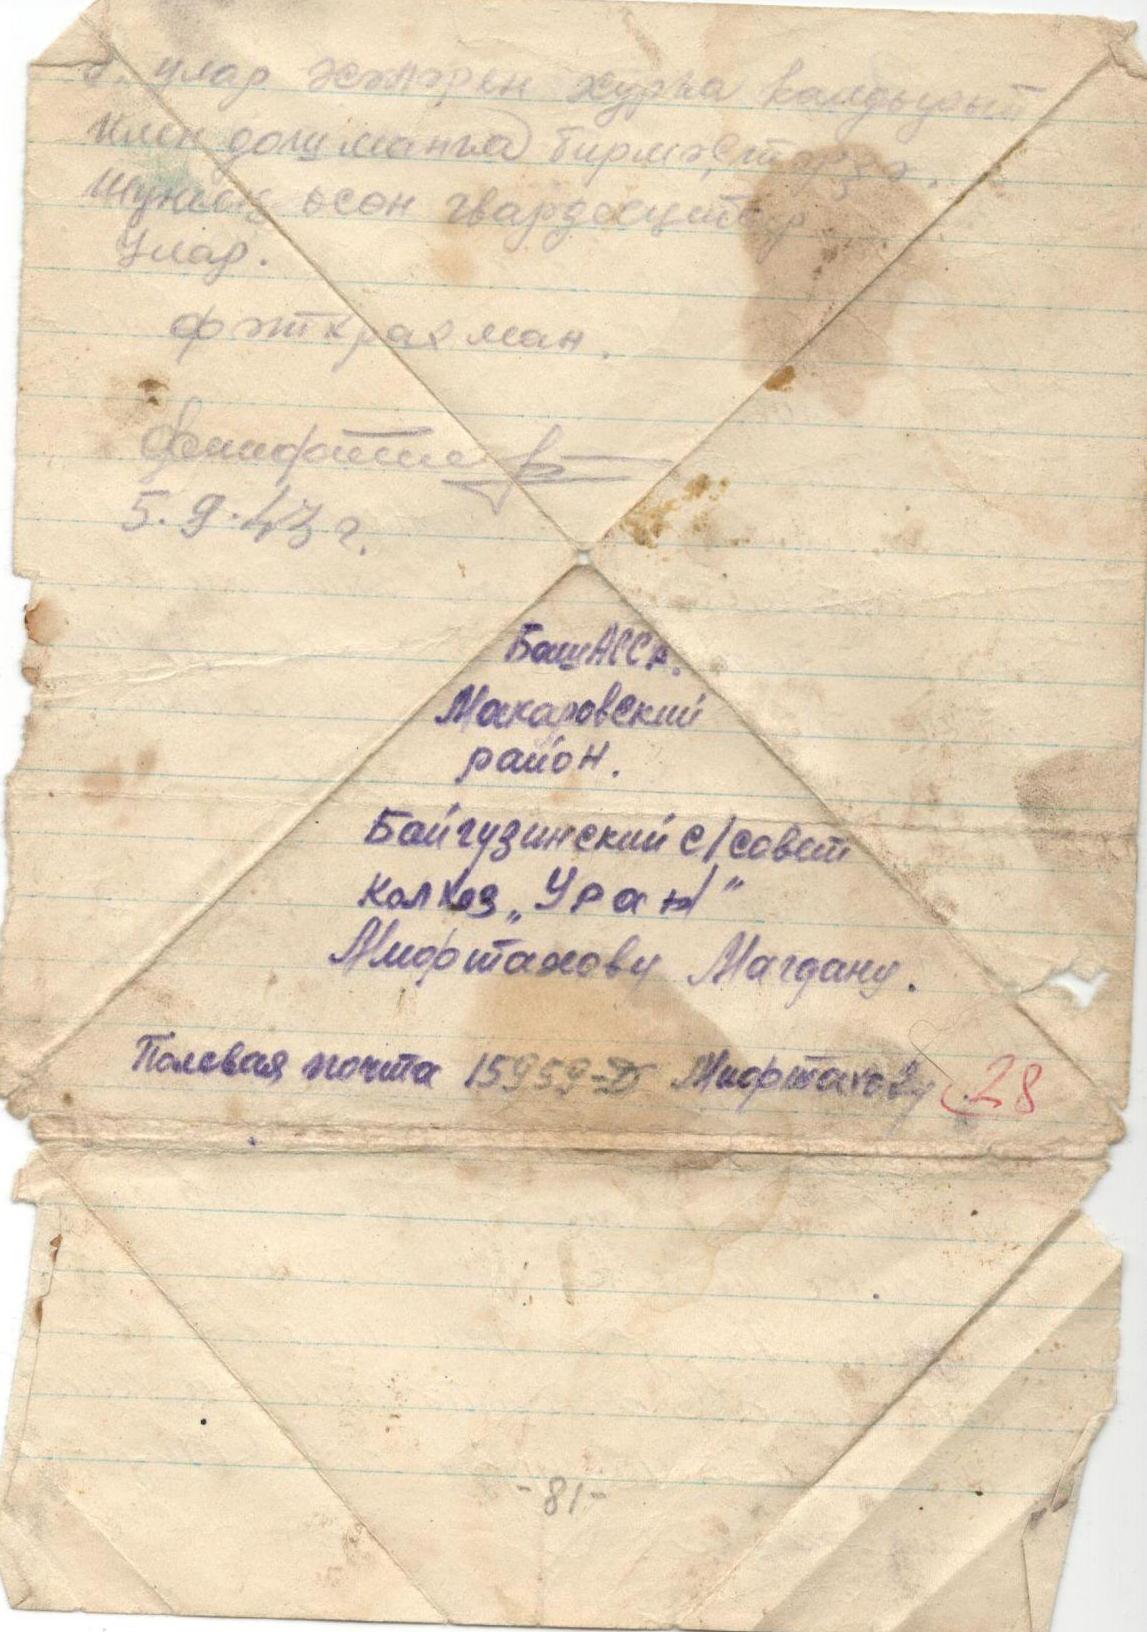 улар эсэрен хурга калдырып
илен дошманга бирмэстэрзэ.
шуның осон гвардеецтар
улар.
Фэткрахман.
5.9.43 г.
БашАССР.
Макаровский
район.
Байгузинский с/совет
колхоз „Уран"
Мифтахову Магдану.
Полевая почта 15959-Д Мифтахову 28
-81-